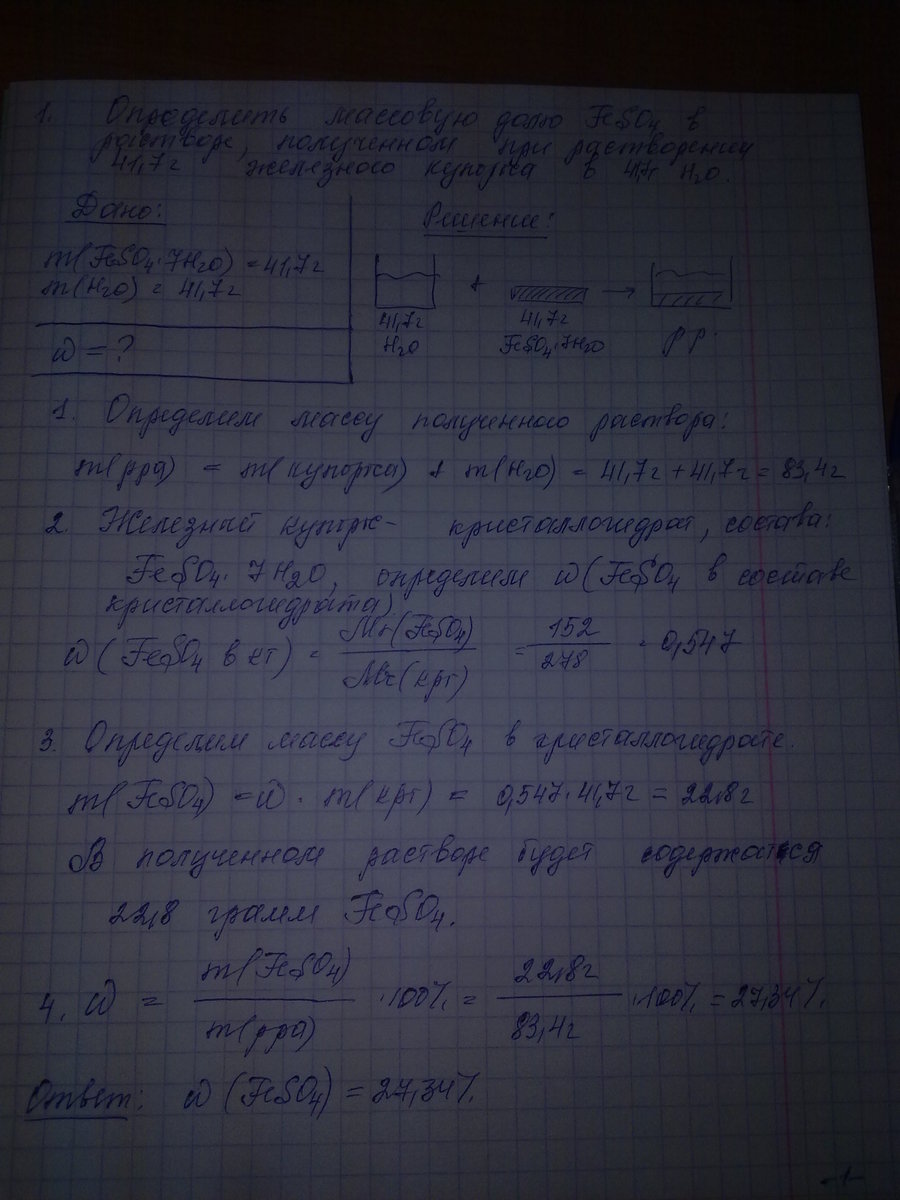 1. Определить массовую долю FeSO4 в
растворе, полученном при растворении
41,7г железного купороса в 41,7г H2O.
Дано:
m(FeSO4·7H2O) = 41,7г
m(H2O) = 41,7г
ω = ?
Решение:
+ →
41,7г 41,7г
H2O FeSO4·7H2O р-р.
1. Определим массу полученного раствора:
m(рра) = m(купорка) + m(H2O) = 41,7г + 41,7г = 83,4г
2. Железный купорк - кристаллогидрат, состава:
FeSO4·7H2O, определим ω(FeSO4 в составе
кристаллогидрата)
ω(FeSO4 в кг) = Mr(FeSO4) / Mr(крг) = 152 / 278 = 0,547
3. Определим массу FeSO4 в кристаллогидрате.
m(FeSO4) = ω · m(крг) = 0,547·41,7г = 22,8г
В полученном растворе будет содержаться
22,8 грамм FeSO4.
4. ω = m(FeSO4) / m(рра) ·100% = 22,8г / 83,4г ·100% = 27,34%.
Ответ: ω(FeSO4) = 27,34%.
-1-